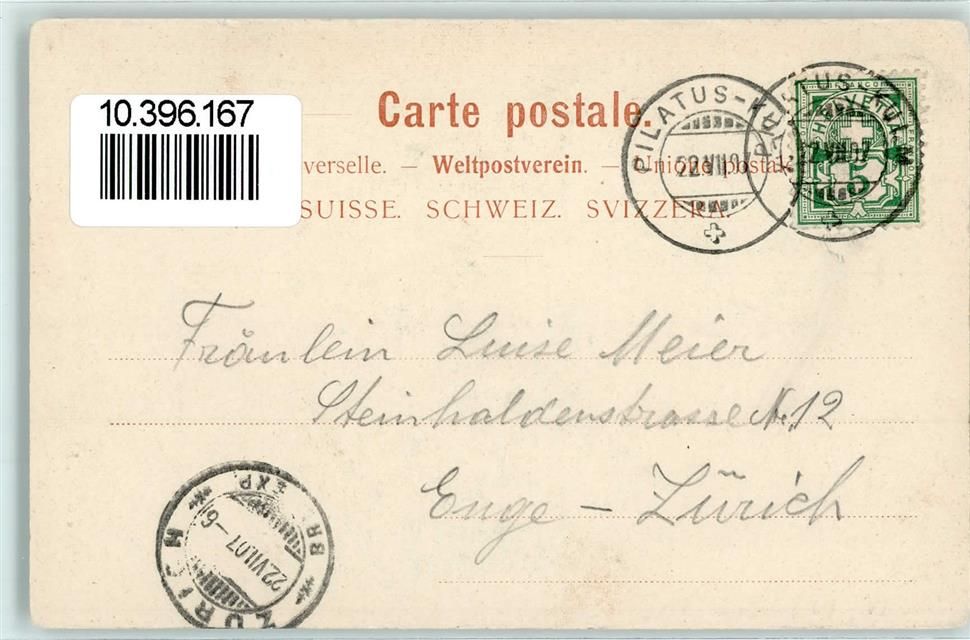 10.396.167
Carte postale.
verselle. — Weltpostverein. — Unione postale
SUISSE. SCHWEIZ. SVIZZERA.
PILATUS-K
22.VII.07
HELVETIA
5
Fräulein Luise Meier
Steinhaldenstrasse N. 12
Enge – Zürich
ZÜRICH
BR. EXP.
22.VII.07–9